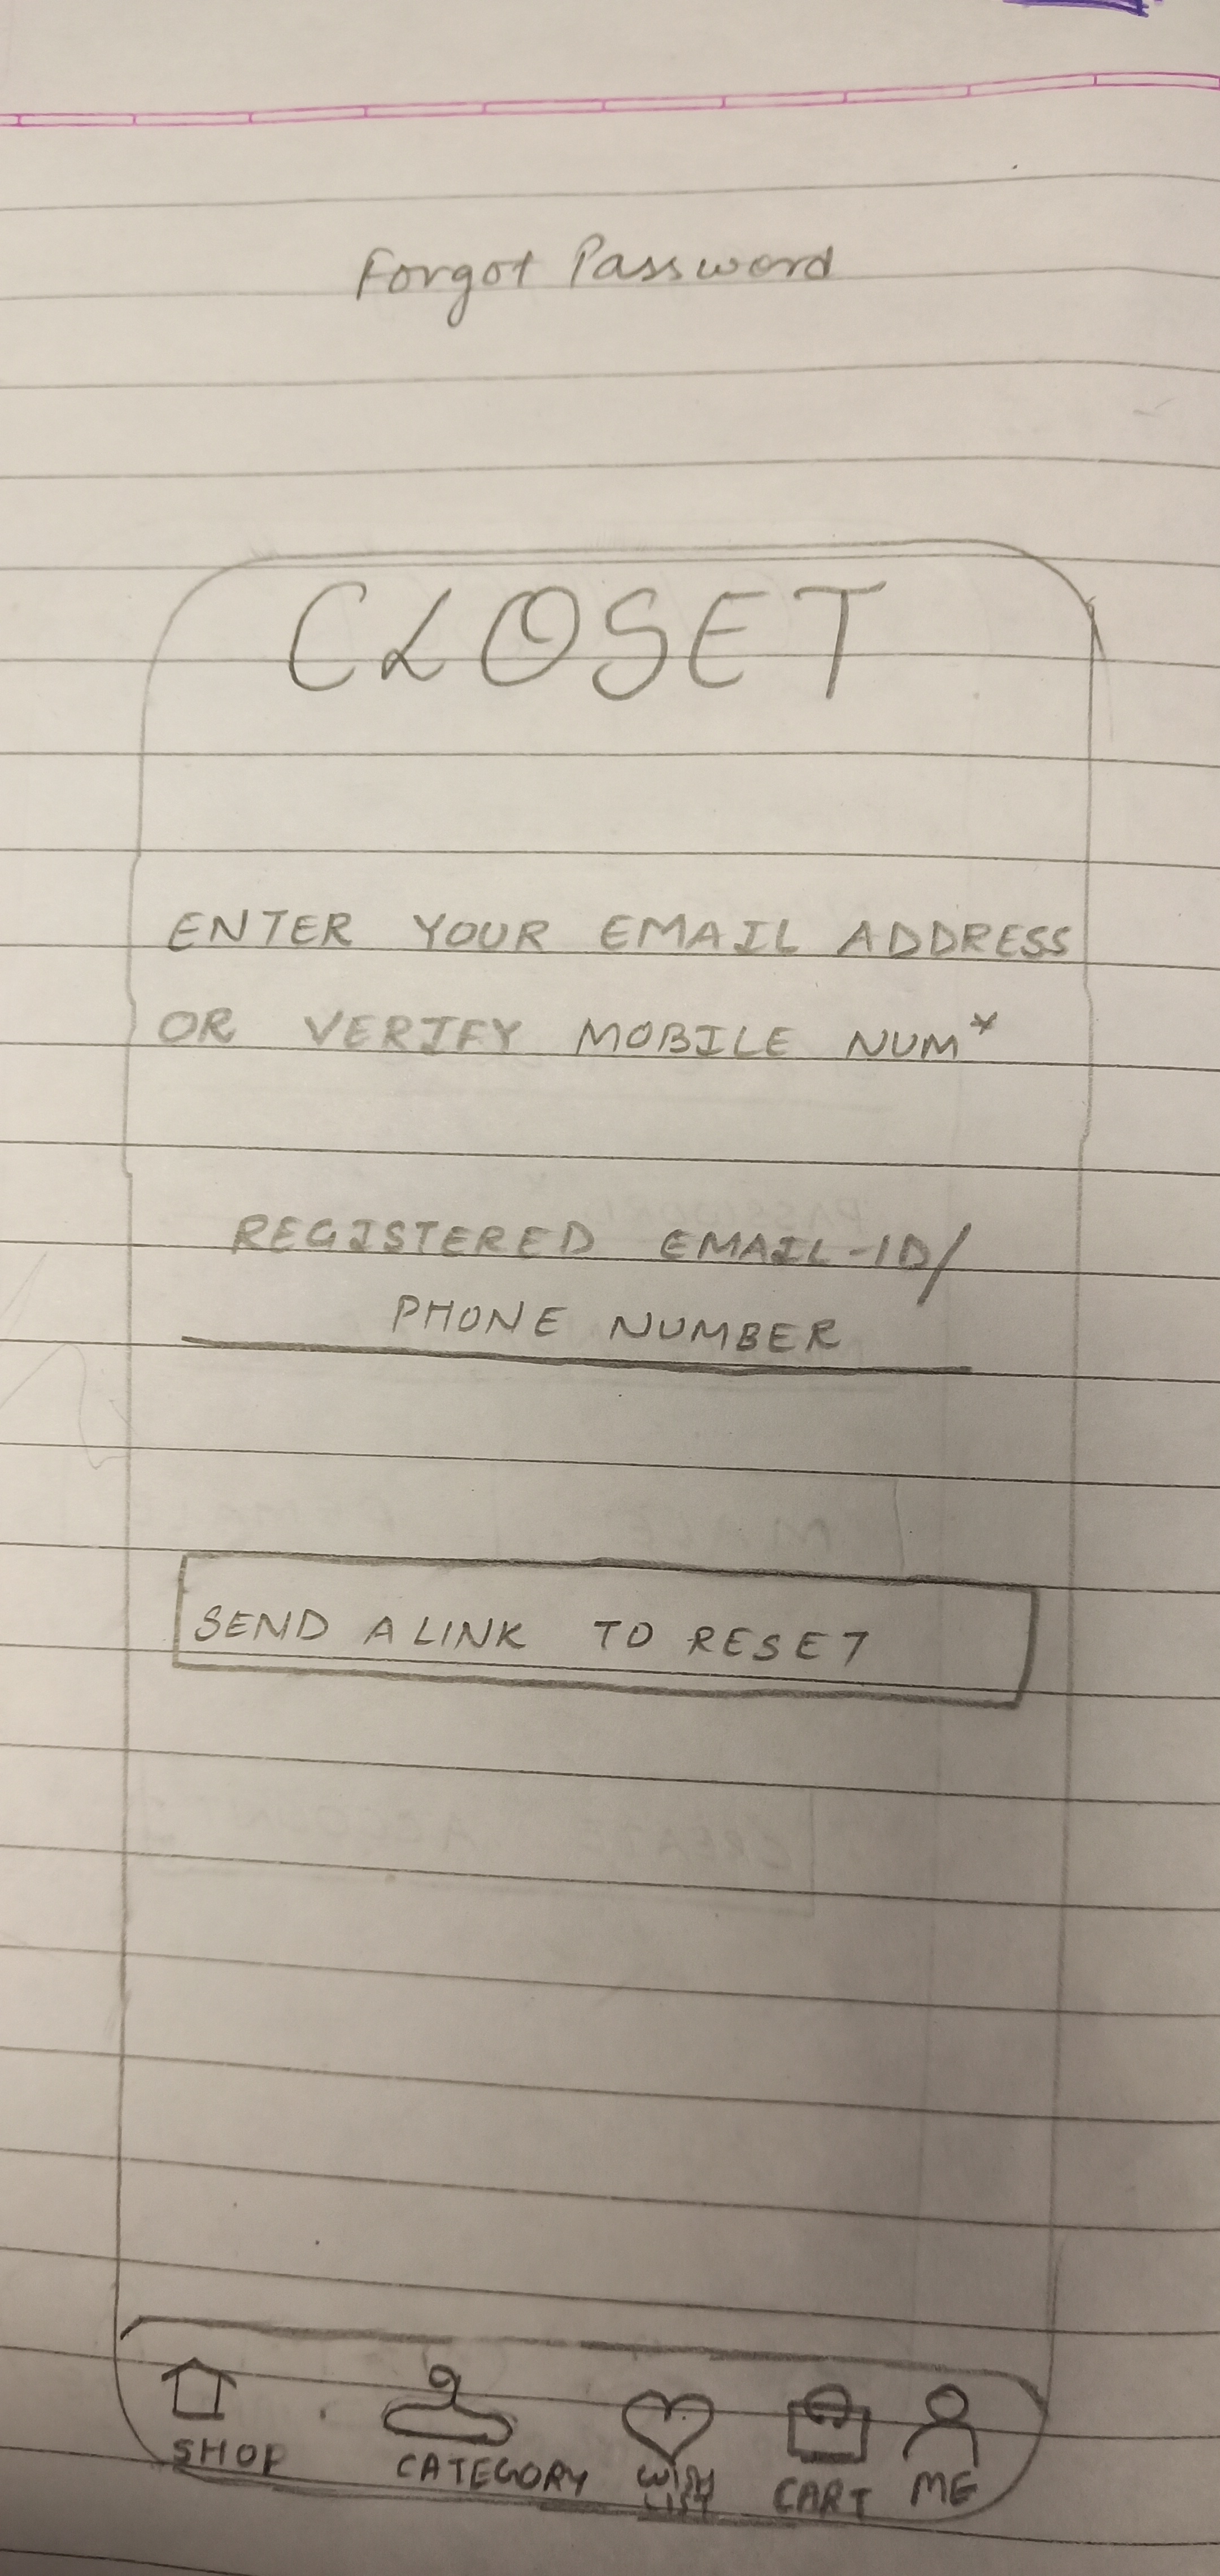 Forgot Password
CLOSET
ENTER YOUR EMAIL ADDRESS
OR VERIFY MOBILE NUM*
REGISTERED EMAIL-ID/
PHONE NUMBER
SEND A LINK TO RESET
SHOP CATEGORY WISH LIST CART ME